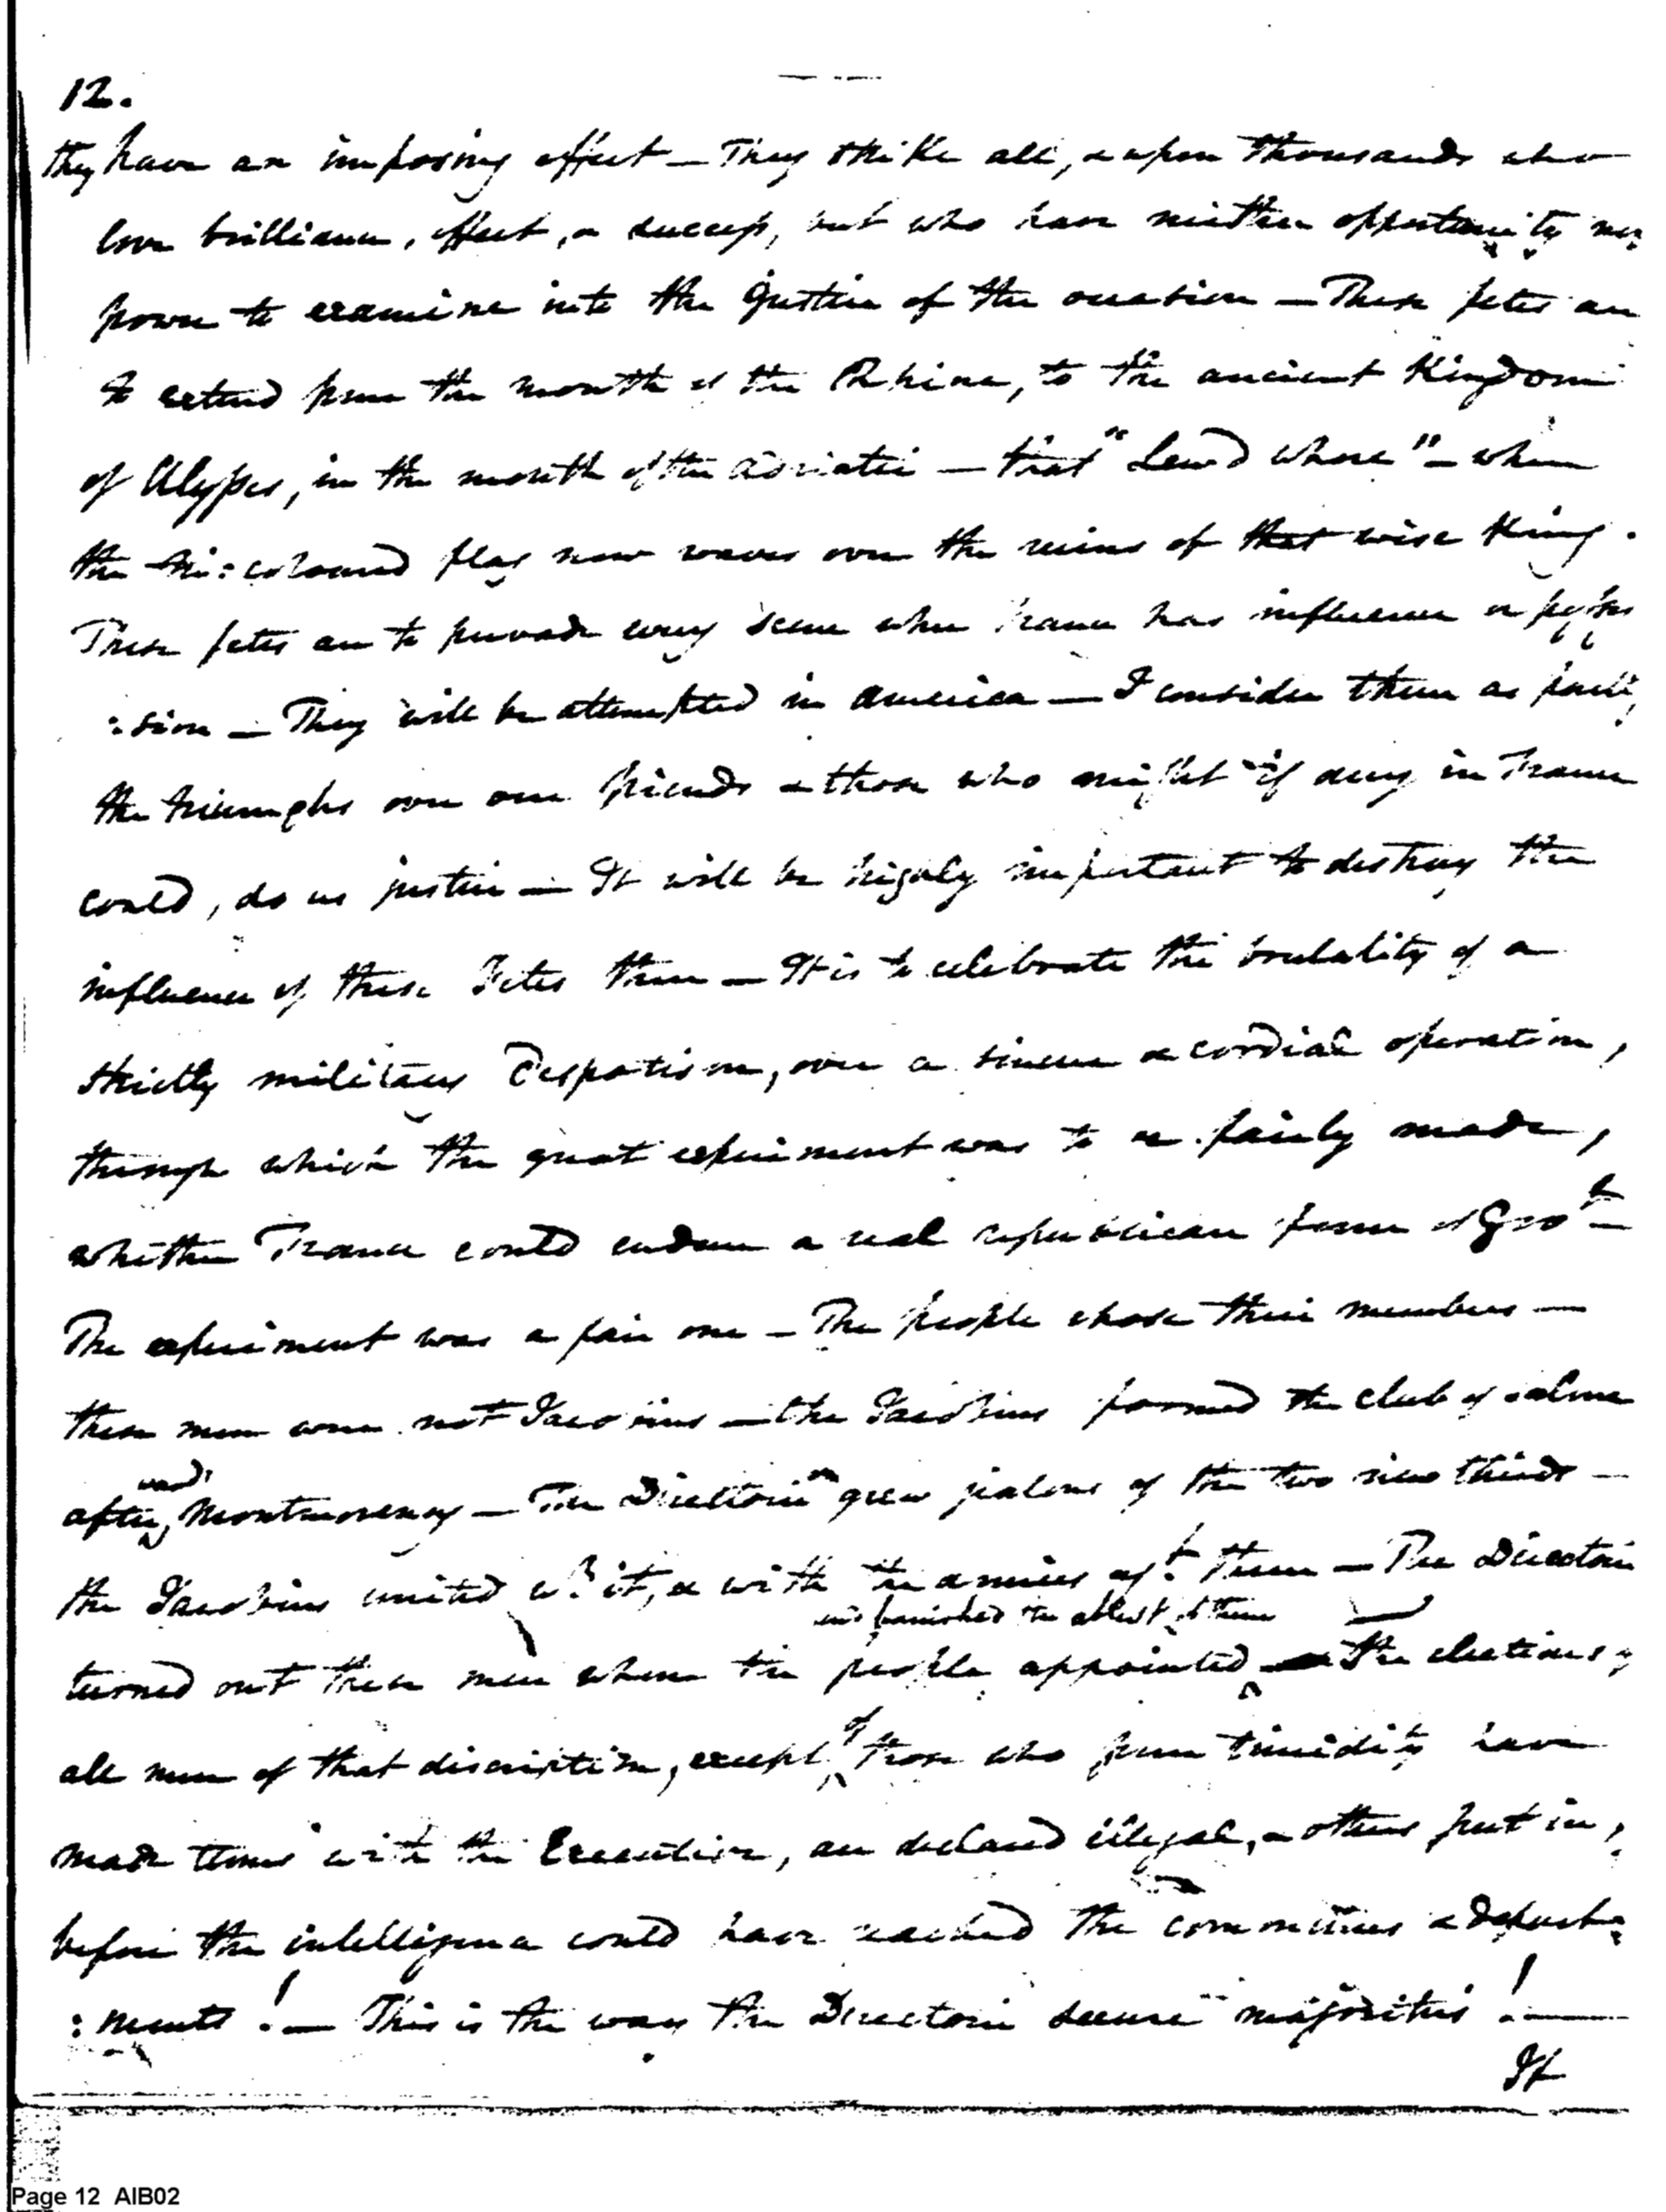 12.
they have an imposing effect — They strike all, & upon thousands who
love brilliance, effect, & success, but who have neither opportunity nor
power to examine into the justice of the occasion — These fetes are
to extend from the mouth of the Rhine, to the ancient Kingdom
of Ulysses, in the mouth of the Adriatic — that "Lewd whore" — where
the tri:coloured flag now waves over the ruins of that wise King.
These fetes are to pervade every scene where France has influence or posses
:sion — They will be attempted in America — I consider them as partly
the triumphs over our friends & those who might if any in France
could, do us justice — It will be highly important to destroy the
influence of these Fetes then — It is to celebrate the brutality of a
strictly military Despotism, over a sincere & cordial operation,
through which the great experiment was to be fairly made,
whether France could endure a real republican form of Govt —
The experiment was a fair one — The people chose their members —
these men were not Jacobins — the Jacobins formed the club of Salme
afterwards Montmorency — The Directoire grew jealous of the two new thirds —
the Jacobins united wh it, & with the armies agt. them — The Directoire
and banished the ablest of them
turned out these men whom the people appointed — The elections of
all men of that discription, except of those who from timidity have
made terms with the Executive, are declared illegal, & others put in,
before the intelligence could have reached the communes & depart:
:ments! — This is the way the Directoire secure majorities! —
It
Page 12 AIB02